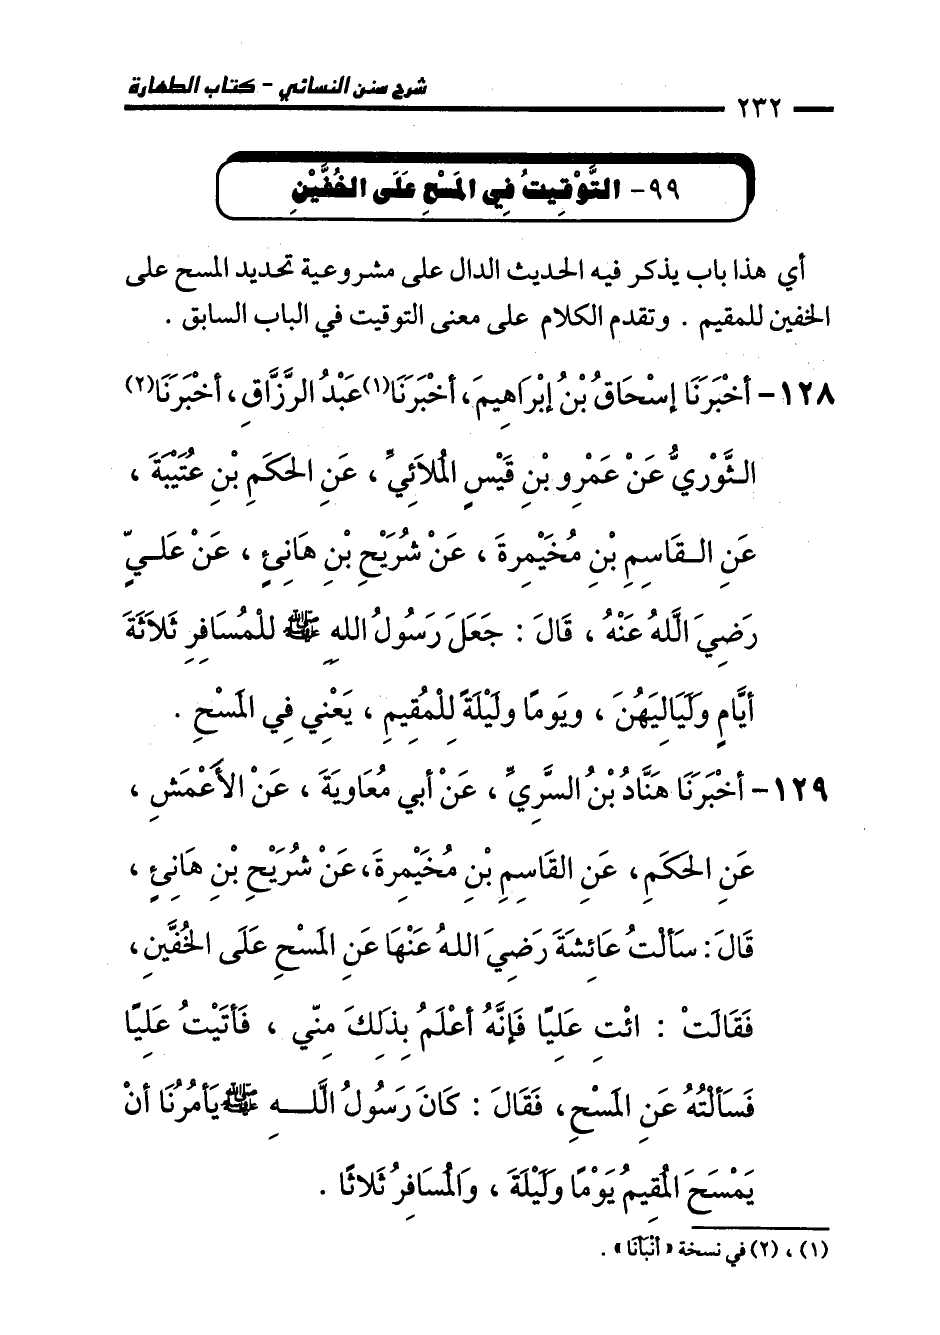 شرح سنن النسائي - كتاب الطهارة
٢٣٢
٩٩- التَّوْقِيتُ فِي المَسْحِ عَلَى الخُفَّيْنِ
أي هذا باب يذكر فيه الحديث الدال على مشروعية تحديد المسح على
الخفين للمقيم . وتقدم الكلام على معنى التوقيت في الباب السابق .
١٢٨- أخْبَرَنَا إسْحَاقُ بْنُ إبْرَاهِيمَ، أخْبَرَنَا(١) عَبْدُ الرَّزَّاقِ، أخْبَرَنَا(٢)
الثَّوْرِيُّ عَنْ عَمْرِو بْنِ قَيْسٍ المُلائِيِّ ، عَنِ الحَكَمِ بْنِ عُتَيْبَةَ ،
عَنِ القَاسِمِ بْنِ مُخَيْمِرةَ ، عَنْ شُرَيْحِ بْنِ هَانِئٍ ، عَنْ عَلـيٍّ
رَضِيَ اللَّهُ عَنْهُ ، قَالَ : جَعَلَ رَسُولُ اللهِ ﷺ للْمُسَافِرِ ثَلاثَةَ
أيَّامٍ وَلَيَالِيَهُنَ ، ويَومًا ولَيْلَةً لِلْمُقِيمِ ، يَعْنِي فِي المَسْحِ .
١٢٩- أخْبَرَنَا هَنَّادُ بْنُ السَّرِيِّ ، عَنْ أبي مُعَاوِيَةَ ، عَنْ الأَعْمَشِ ،
عَنِ الحَكَمِ، عَنِ القَاسِمِ بْنِ مُخَيْمِرةَ، عَنْ شُرَيْحِ بْنِ هَانِئٍ ،
قَالَ: سَألْتُ عَائِشَةَ رَضِيَ اللهُ عَنْهَا عَنِ المَسْحِ عَلَى الخُفَّينِ،
فَقَالَتْ : ائْتِ عَلِيًا فَإنَّهُ أعْلَمُ بِذَلِكَ مِنِّي ، فَأتَيْتُ عَليًا
فَسَألْتُهُ عَنِ المَسْحِ، فَقَالَ : كَانَ رَسُولُ اللَّـــهِ ﷺ يَأمُرُنَا أنْ
يَمْسَحَ المُقِيمُ يَوْمًا وَلَيْلَةَ ، وَالمُسَافِرُ ثَلاثًا .
(١) ، (٢) في نسخة «أنْبَأنَا» .